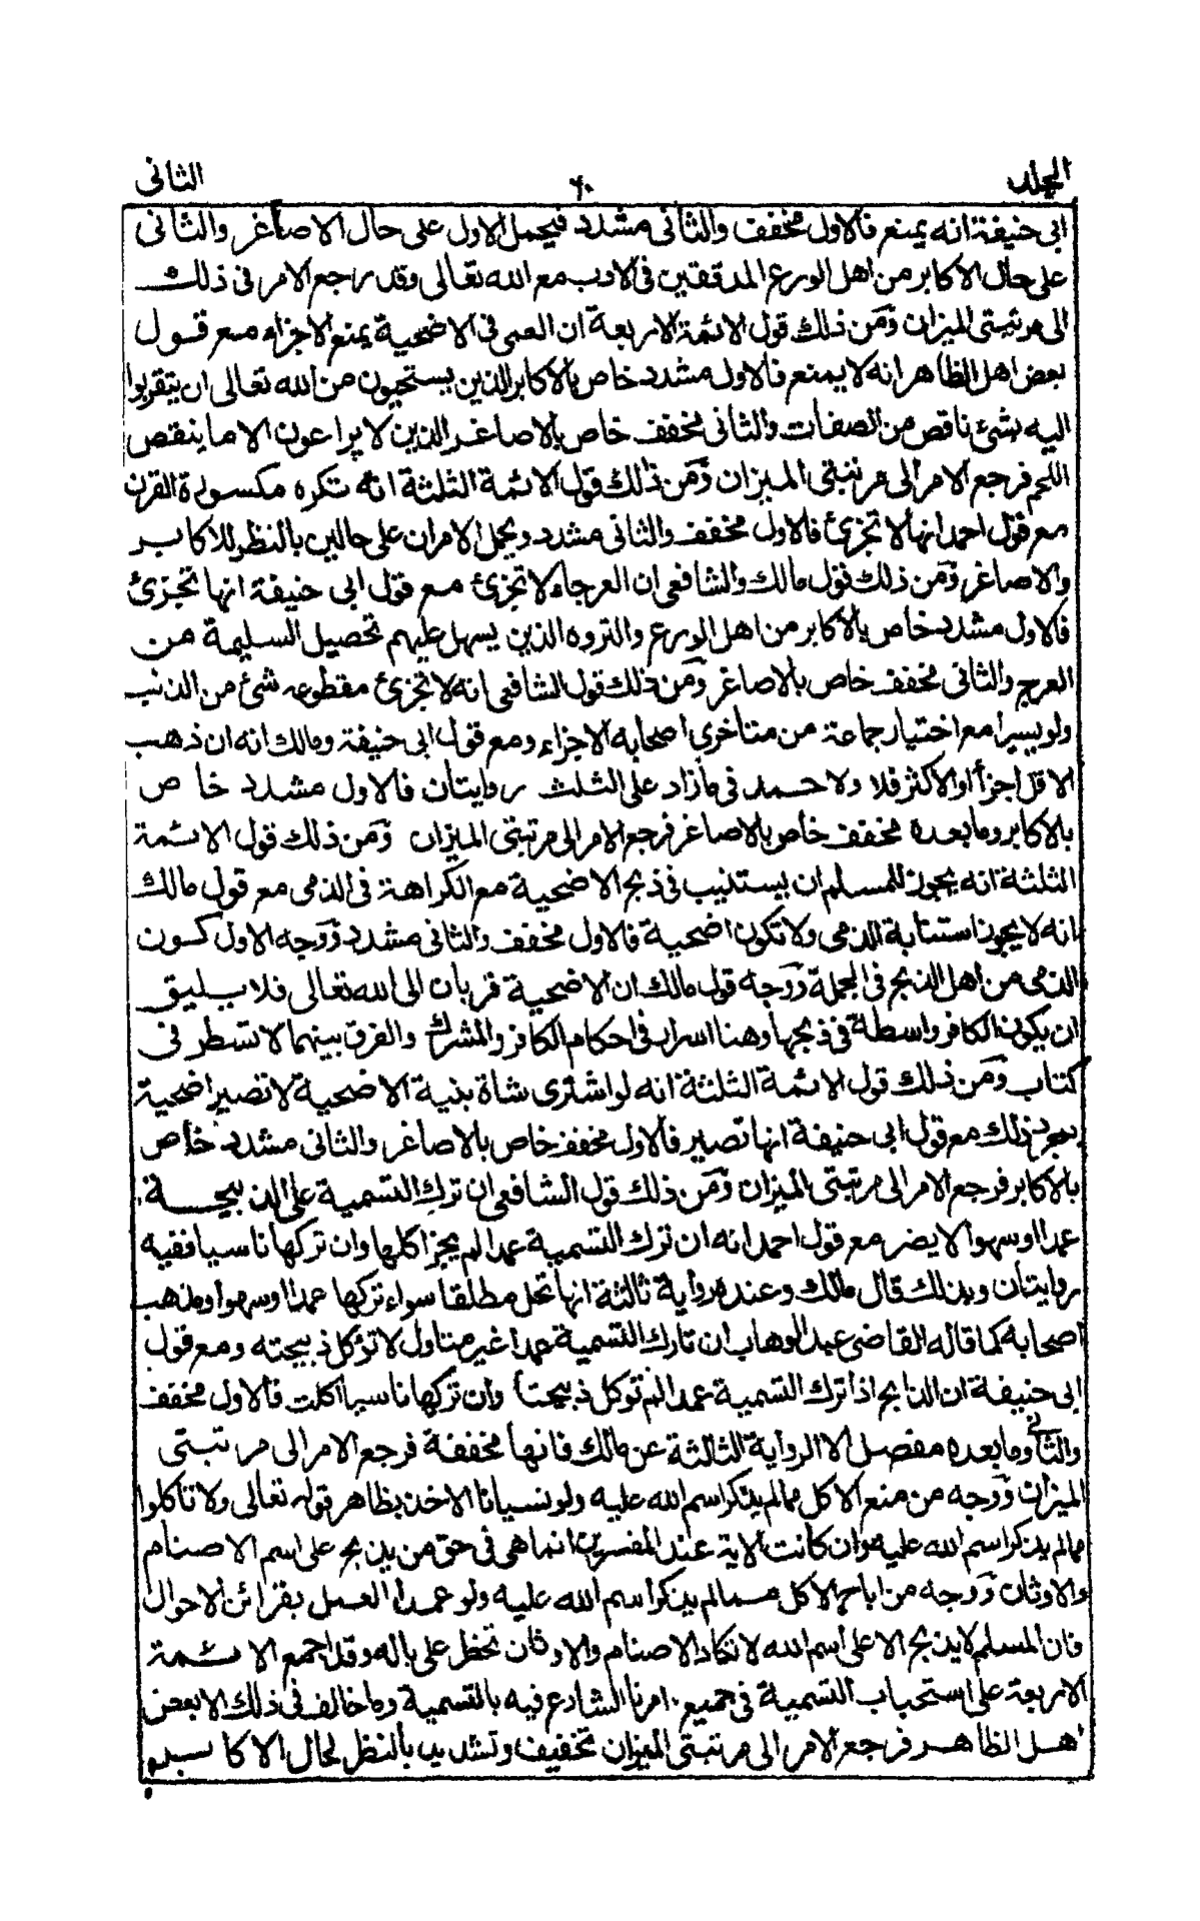 المجلد
٦٠
الثانى
ابى حنيفة انه يمنع فالاول مخفف والثانى مشدد فيحمل الاول على حال الاصاغر والثانى
على حال الاكابر من اهل الورع المدققين فى الادب مع الله تعالى وقد راجع الامر فى ذلك
الى مرتبتى الميزان ومن ذلك قول الائمة الاربعة ان العمى فى الاضحية يمنع الاجزاء مع قول
بعض اهل الظاهر انه لا يمنع فالاول مشدد خاص بالاكابر الذين يستحيون من الله تعالى ان يتقربوا
اليه بشئ ناقص من الصفات والثانى مخفف خاص بالاصاغر الذين لا يراعون الا ما ينقص
اللحم فرجع الامر الى مرتبتى الميزان ومن ذلك قول الائمة الثلثة انه تكره مكسورة القرن
مع قول احمد انها لا تجزئ فالاول مخفف والثانى مشدد ويحمل الامران على حالين بالنظر للاكابر
والاصاغر ومن ذلك قول مالك والشافعى ان العرجاء لا تجزئ مع قول ابى حنيفة انها تجزئ
فالاول مشدد خاص بالاكابر من اهل الورع والثروه الذين يسهل عليهم تحصيل السليمة من
العرج والثانى مخفف خاص بالاصاغر ومن ذلك قول الشافعى انه لا تجزئ مقطوعه شئ من الذنب
ولو يسيرا مع اختيار جماعة من متاخرى اصحابه الاجزاء ومع قول ابى حنيفة ومالك انه ان ذهب
الاقل اجزأ او الاكثر فلا ولاحمد فى مازاد على الثلث روايتان فالاول مشدد خاص
بالاكابر وما بعده مخفف خاص بالاصاغر فرجع الامر الى مرتبتى الميزان ومن ذلك قول الائمة
الثلثة انه يجوز للمسلم ان يستنيب فى ذبح الاضحية مع الكراهة فى الذمى مع قول مالك
انه لا يجوز استنابة الذمى ولا تكون اضحية فالاول مخفف والثانى مشدد ووجه الاول كون
الذمى من اهل الذبح فى الجملة ووجه قول مالك ان الاضحية قربان الى الله تعالى فلا يليق
ان يكون الكافر واسطة فى ذبحها وهنا اسرار فى احكام الكافر والمشرك والفرق بينهما لا تسطر فى
كتاب ومن ذلك قول الائمة الثلثة انه لو اشترى شاة بنية الاضحية لا تصير اضحية
بمجرد ذلك مع قول ابى حنيفة انها تصير فالاول مخفف خاص بالاصاغر والثانى مشدد خاص
بالاكابر فرجع الامر الى مرتبتى الميزان ومن ذلك قول الشافعى ان ترك التسمية على الذبيحة
عمدا او سهوا لا يضر مع قول احمد انه ان ترك التسمية عمدا لم يجز اكلها وان تركها ناسيا ففيه
روايتان وبذلك قال مالك وعنده رواية ثالثة انها تحل مطلقا سواء تركها عمدا او سهوا ومذهب
اصحابه كما قاله القاضى عبد الوهاب ان تارك التسمية عمدا غير متاول لا تؤكل ذبيحته ومع قول
ابى حنيفة ان الذابح اذا ترك التسمية عمدا لم توكل ذبيحته وان تركها ناسيا اكلت فالاول مخفف
والثانى وما بعده مفصل الا الرواية الثالثة عن مالك فانها مخففة فرجع الامر الى مرتبتى
الميزان ووجه من منع الاكل مما لم يذكر اسم الله عليه ولو نسيانا الاخذ بظاهر قوله تعالى ولا تأكلوا
مما لم يذكر اسم الله عليه وان كانت الاية عند المفسرين انما هى فى حق من يذبح على اسم الاصنام
والاوثان ووجه من اباح الاكل مما لم يذكر اسم الله عليه ولو عمدا العمل بقرائن الاحوال
فان المسلم لا يذبح الا على اسم الله لا تكاد الاصنام والاوثان تخطر على باله وقد اجمع الائمة
الاربعة على استحباب التسمية فى جميع ما امرنا الشارع فيه بالتسمية وما خالف فى ذلك الا بعض
اهل الظاهر فرجع الامر الى مرتبتى الميزان تخفيف وتشديد بالنظر لحال الاكابر